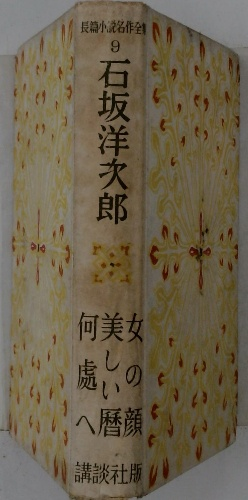 長篇小説名作全集
9
石坂洋次郎
女の顔
美しい暦
何處へ
講談社版